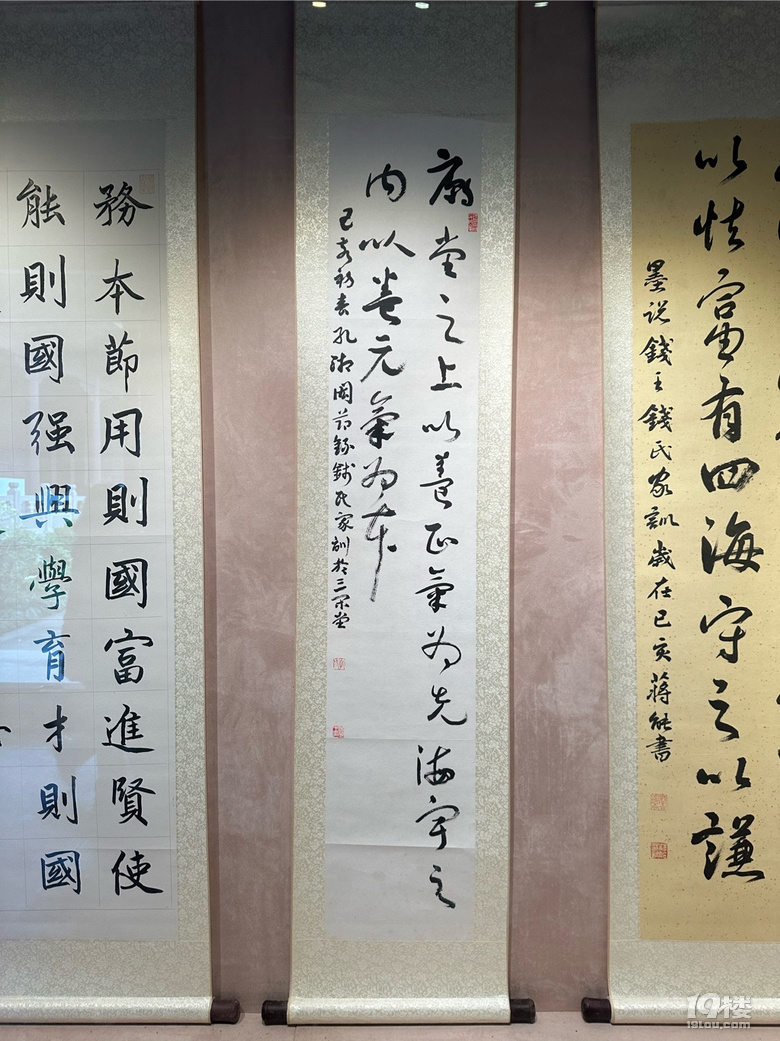 以怯富有四海守之以謙
墨说錢王錢氏家訓歲在己亥蔣能書
廟堂之上以養正氣为先海宇之
内以養元氣为本
己亥新春孔國节錄錢氏家訓於三堂
務本節用則國富進賢使
能則國强興學育才則國
19楼
19lou.com